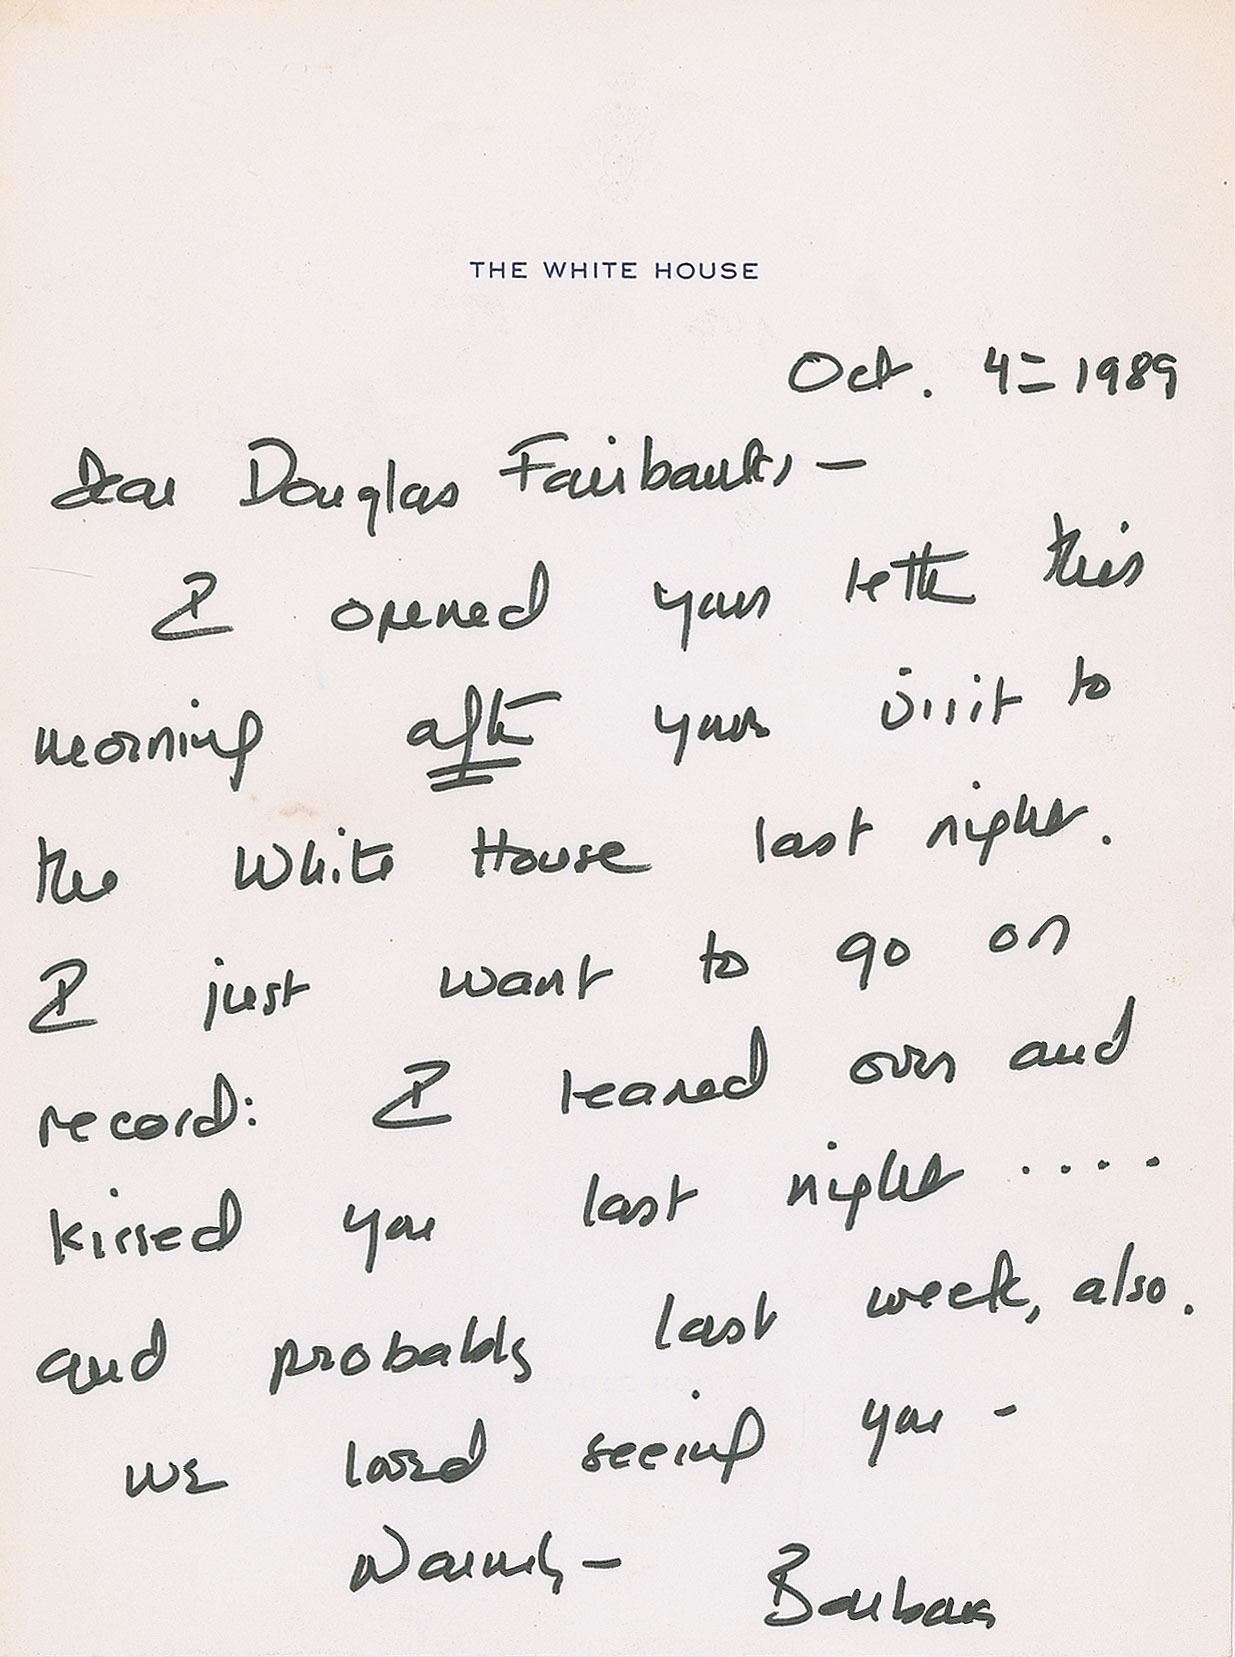 THE WHITE HOUSE
Oct. 4= 1989
Dear Douglas Fairbanks, —
I opened your letter this
morning after your visit to
the White House last night.
I just want to go on
record: I leaned over and
kissed you last night ....
and probably last week, also.
we loved seeing you -
Warmly —
Barbara